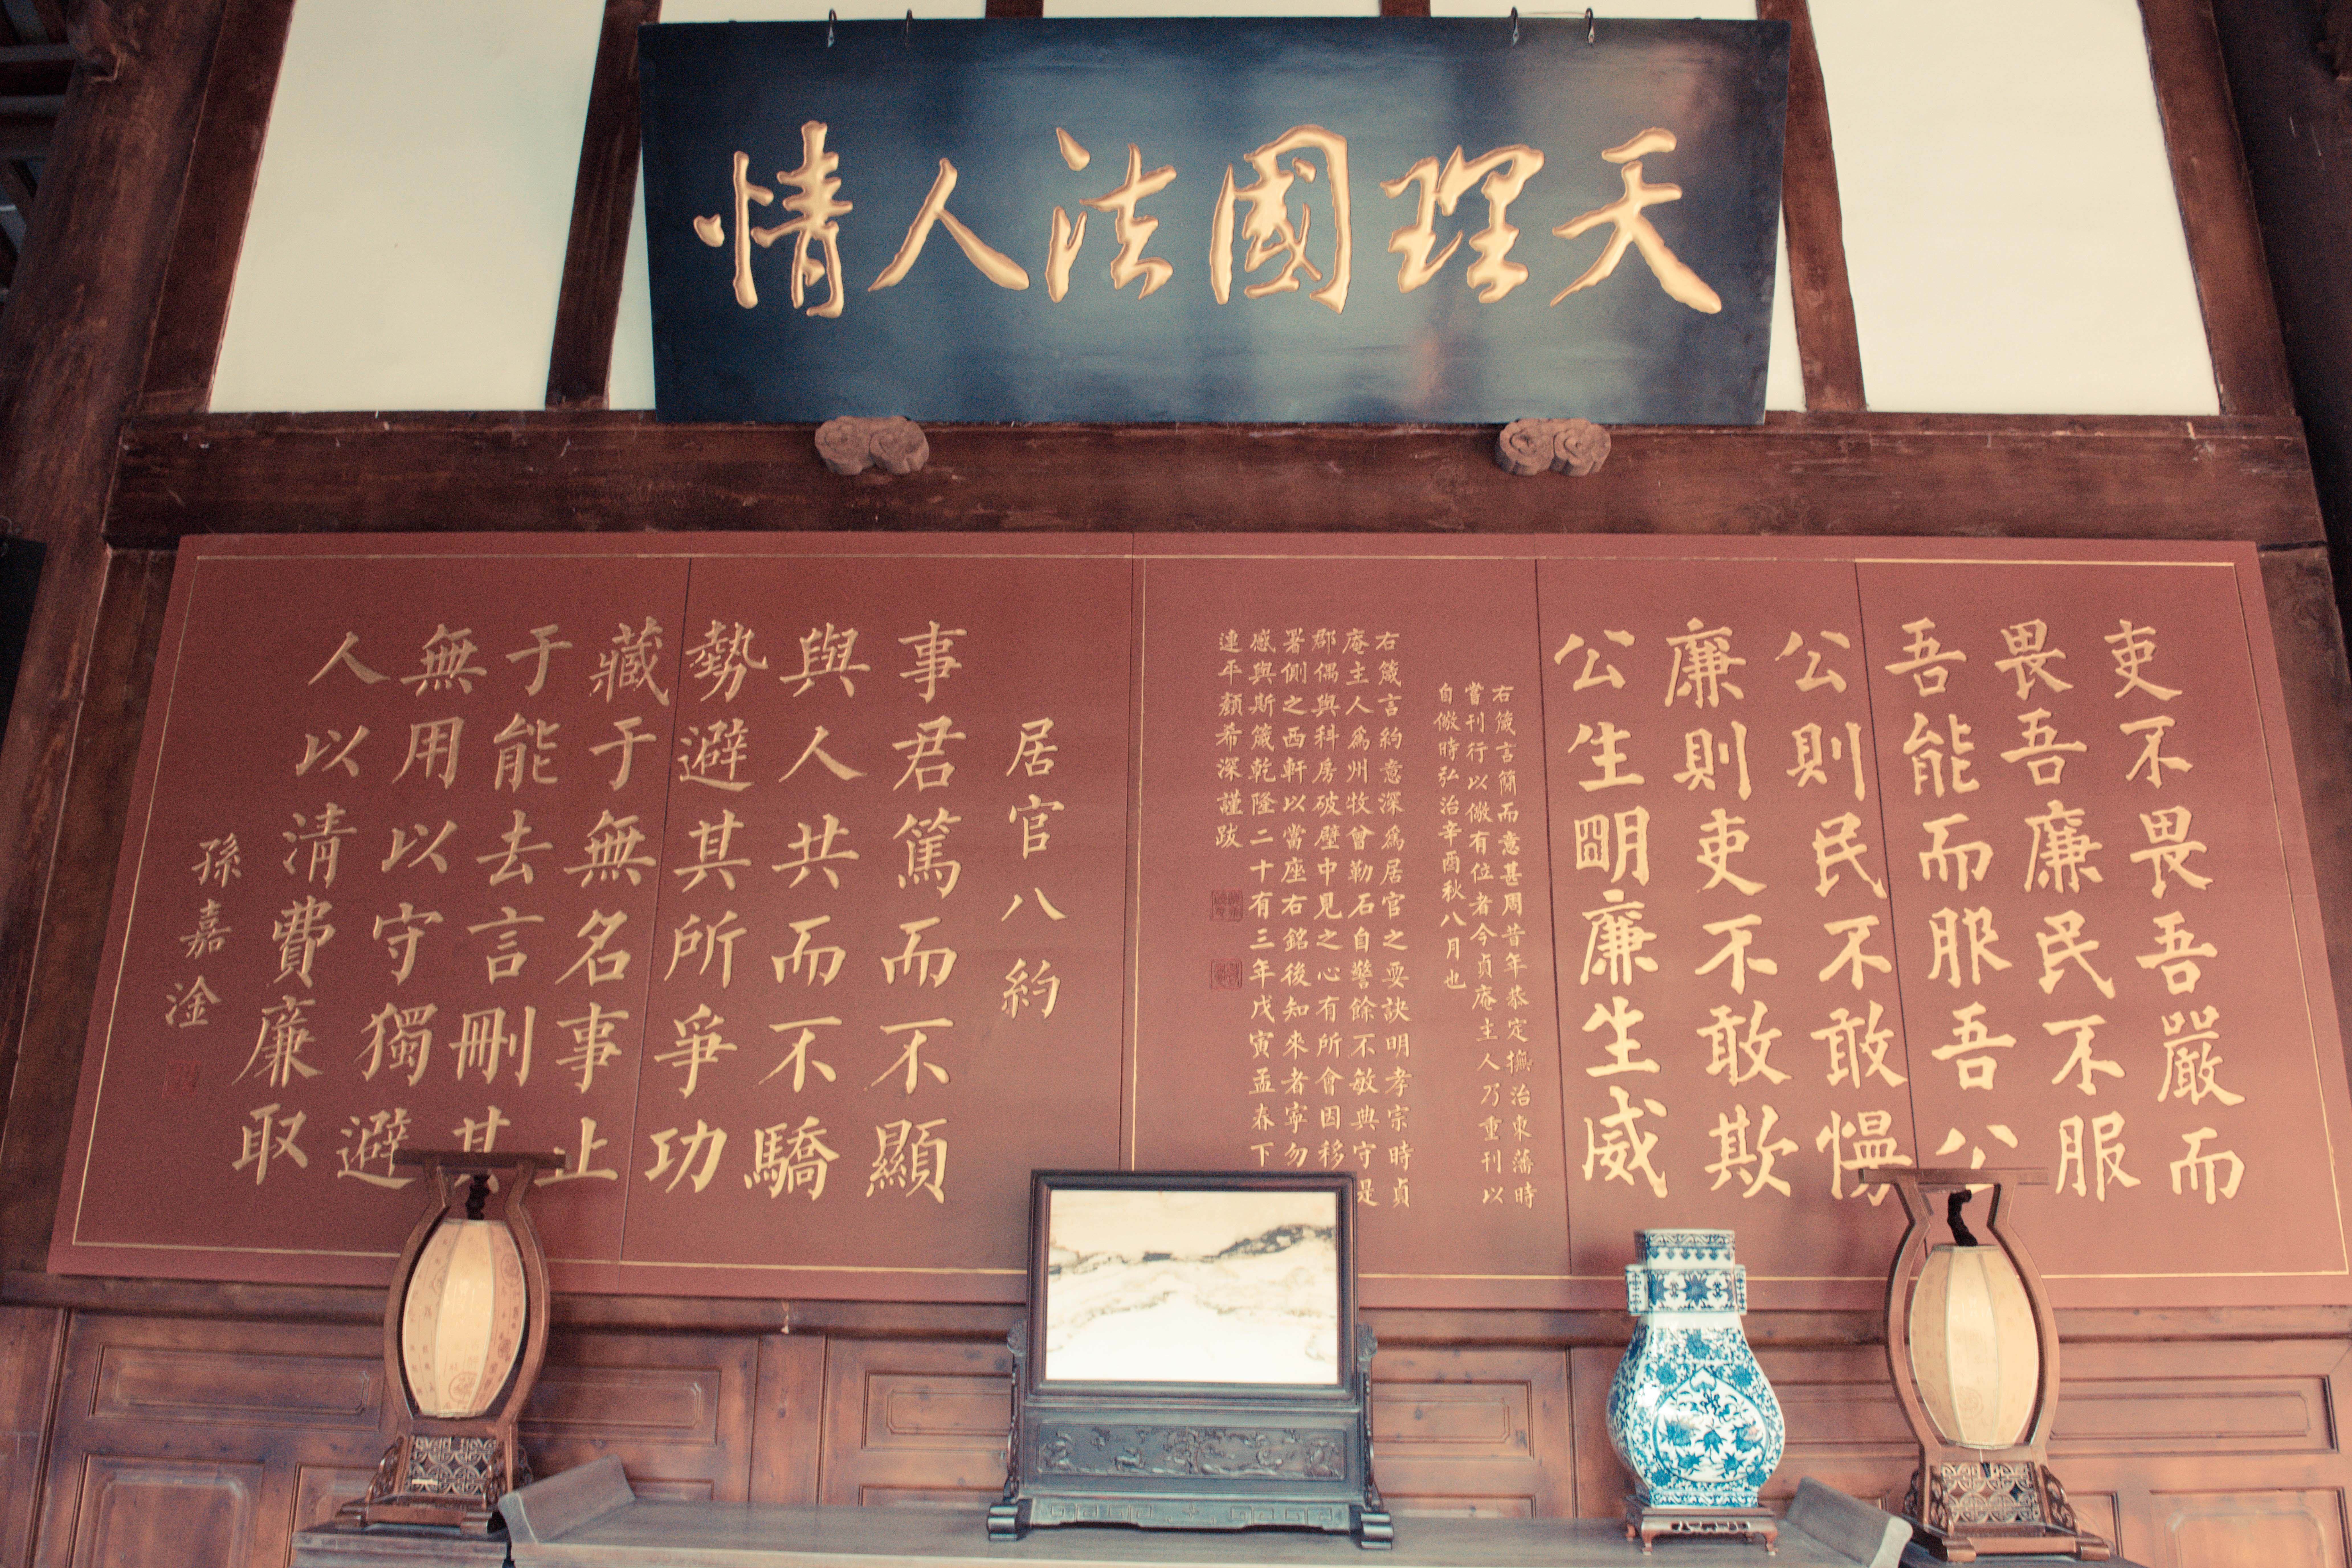 天理國法人情
吏不畏吾嚴而
畏吾廉民不服
吾能而服吾公
公則民不敢慢
廉則吏不敢欺
公生明廉生威
右箴言簡而意甚周昔年恭定撫治東藩時
嘗刊行以儆有位者今貞庵主人乃重刊以
自儆時弘治辛酉秋八月也
右箴言約意深為居官之要訣明孝宗時貞
庵主人為州牧曾勒石自警餘不敏典守是
郡偶與科房破壁中見之心有所會因移
署側之西軒以當座右銘後知來者寧勿
感與斯箴乾隆二十有三年戊寅孟春下
連平顏希深謹跋
居官八約
事君篤而不顯
與人共而不驕
勢避其所爭功
藏于無名事止
于能去言刪其
無用以守獨避
人以清費廉取
孫嘉淦